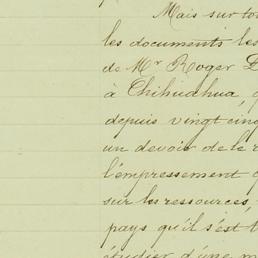 Mais sur to
les documents les
de Mr Roger D
à Chihuahua,
depuis vingt cinq
un devoir de le r
l'empressement
sur les ressources,
pays qu'il s'est t
étudier d'une m